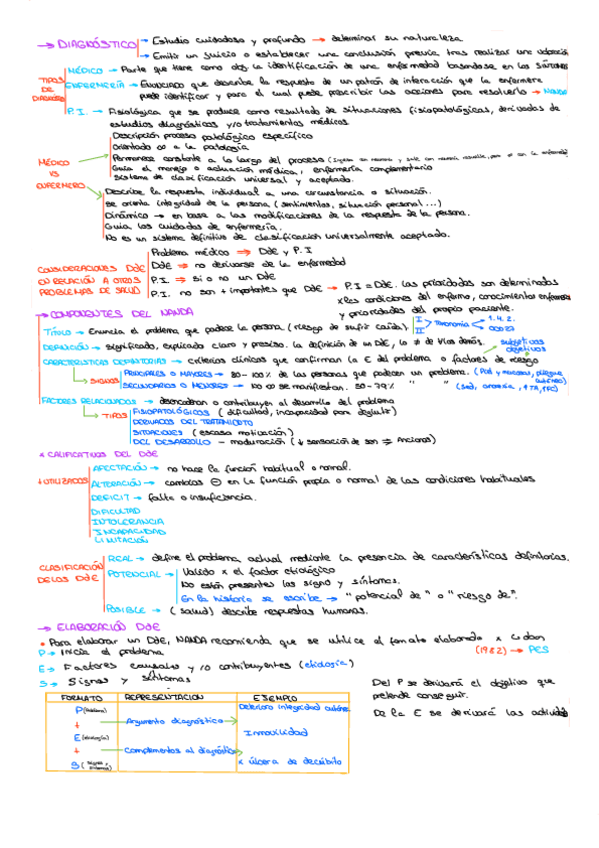 → DIAGNÓSTICO → Estudio cuidadoso y profundo → determinar su naturaleza
→ Emitir un juicio o establecer una conclusión previa tras realizar una valoración
TIPOS DE DIAGNÓSTICO
MÉDICO → Parte que tiene como obj la identificación de una enfermedad basandose en los síntomas
ENFERMERÍA → Enunciado que describe la respuesta de un patrón de interacción que la enfermera
puede identificar y para el cual puede prescribir las acciones para resolverlo → NANDA
P.I. → Fisiológica que se produce como resultado de situaciones fisiopatológicas, derivadas de
estudios diagnósticos y/o tratamientos médicos.
MÉDICO VS ENFERMERO
Descripción proceso patológico específico
Orientado a la patología
Permanece constante a lo largo del proceso
Guía el manejo o actuación médica, enfermería complementario
Sistema de clasificación universal y aceptado.
Describe la respuesta individual a una circunstancia o situación.
Se orienta integridad de la persona (sentimientos, situación personal...)
Dinámico → en base a las modificaciones de la respuesta de la persona.
Guia los cuidados de enfermería.
No es un sistema definitivo de clasificación universalmente aceptado.
CONSIDERACIONES DdE EN RELACIÓN A OTROS PROBLEMAS DE SALUD
Problema médico ⇒ DdE y P.I
DdE ⇒ no derivarse de la enfermedad
P.I. ⇒ si o no un DdE
P.I. no son + importantes que DdE → P.I = DdE. Las prioridades son determinadas
x las condiciones del enfermo, conocimiento enfermera
y prioridades del propio paciente.
→ COMPONENTES DEL NANDA
TÍTULO → Enuncia el problema que padece la persona (riesgo de sufrir caída) I II > Taxonomía 1.4.2. 00027
DEFINICIÓN → significado, explicado claro y preciso. La definición de un DdE, lo ≠ de los demás. subjetivos objetivos
CARACTERISTICAS DEFINITORIAS → criterios clínicos que confirman la E del problema o factores de riesgo
SIGNOS
PRINCIPALES O MAYORES → 80-100% de las personas que padecen un problema. (Piel y mucosas, pliegue cutáneo)
SECUNDARIOS O MENORES → no se manifiestan. 50-79% " " (Sed, anorexia, ↑TA, ↑FC)
FACTORES RELACIONADOS → desencadenan o contribuyen al desarrollo del problema
→ TIPOS
FISIOPATOLÓGICOS (dificultad, incapacidad para deglutir)
DERIVADOS DEL TRATAMIENTO
SITUACIONES (escasa motivación)
DEL DESARROLLO - maduración (↓ sensación de sed ⇒ Ancianos)
* CALIFICATIVOS DEL DdE
+ UTILIZADOS
AFECTACIÓN → no hace la función habitual o normal.
ALTERACIÓN → cambios ⊖ en la función propia o normal de las condiciones habituales
DEFICIT → falta o insuficiencia.
DIFICULTAD
INTOLERANCIA
INCAPACIDAD
LIMITACIÓN
CLASIFICACIÓN DE LOS DdE
REAL → define el problema actual mediante la presencia de características definitorias.
POTENCIAL → Valido x el factor etiológico
No están presentes los signo y síntomas.
En la historia se escribe → "potencial de" o "riesgo de".
POSIBLE → (salud) describe respuestas humanas.
→ ELABORACIÓN DdE
• Para elaborar un DdE, NANDA recomienda que se utilice el formato elaborado x Gordon
P → Inicia el problema (1982) → PES
E → Factores causales y/o contribuyentes (etiología)
S → Signos y síntomas
FORMATO REPRESENTACION EJEMPLO
P (problema) Deterioro integridad cutánea
+ → Argumento diagnóstico →
E (etiología) Inmovilidad
+ → Complementos al diagnóstico →
S (signos y síntomas) x úlcera de decúbito
Del P se derivará el objetivo que
pretende conseguir.
De la E se derivará las actividades